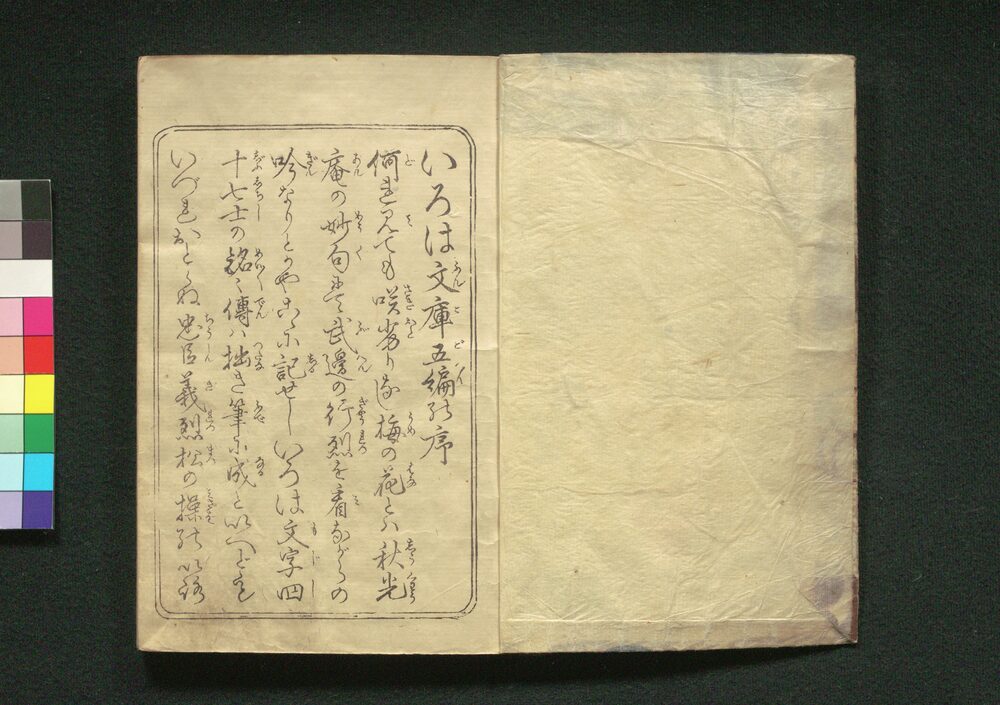 いろは文庫五編の序
何を見ても咲劣りなし梅の花とハ秋光
庵の妙句にて武邊の行烈を看ながらの
吟なりとかやこゝに記せしいろは文字四
十七士の銘々傳ハ拙き筆に成といへども
いづれおとらぬ忠臣義烈松の操の以路